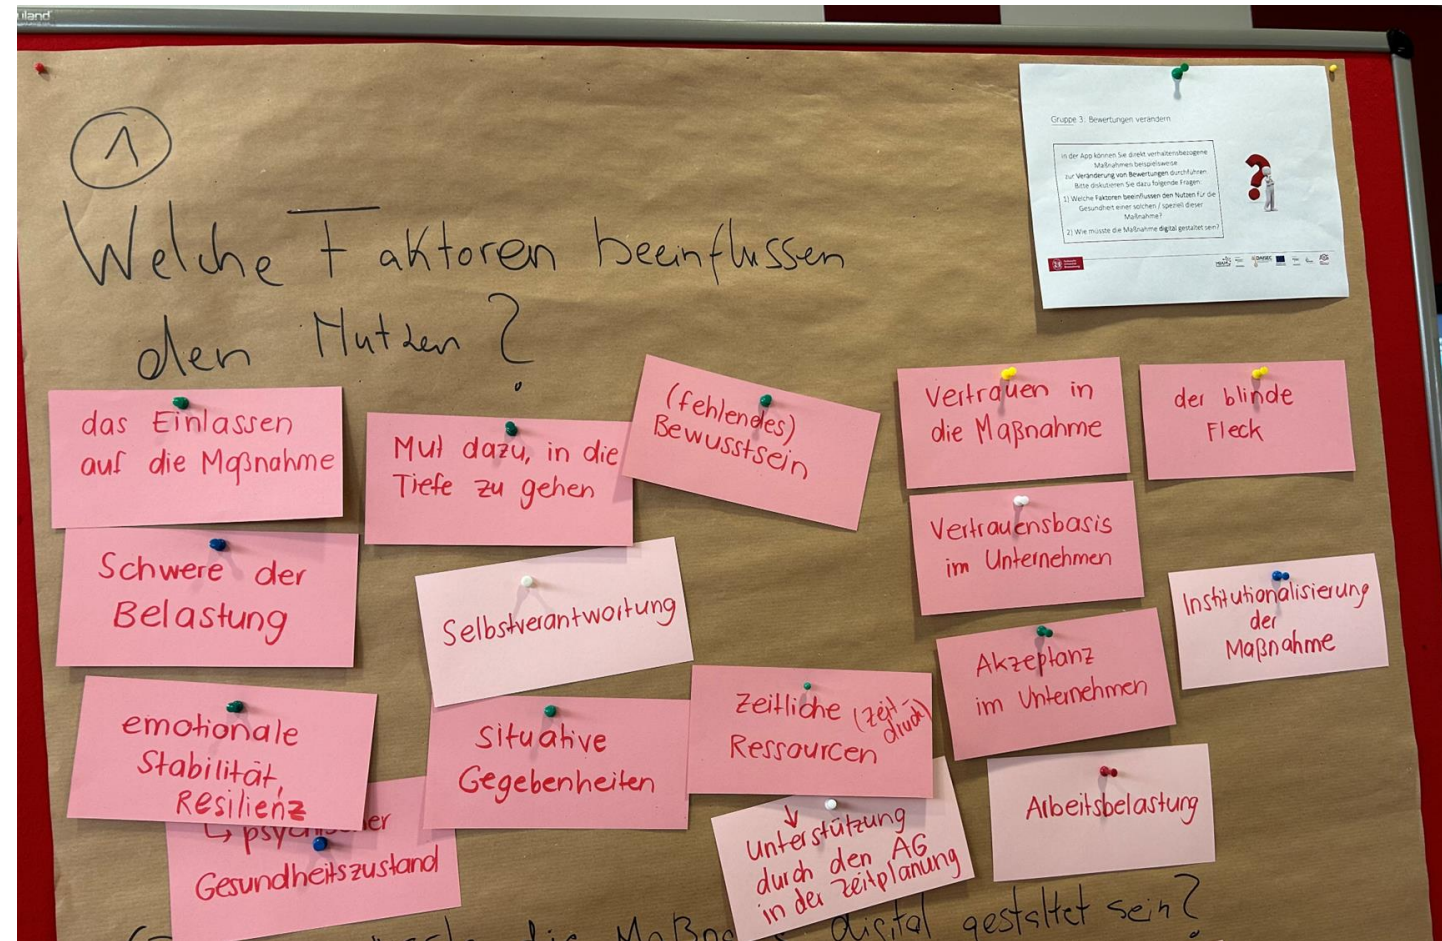 uland
1
Welche Faktoren beeinflussen
den Nutzen?
Gruppe 3: Bewertungen verändern
In der App können Sie direkt verhaltensbezogene
Maßnahmen beispielsweise
zur Veränderung von Bewertungen durchführen.
Bitte diskutieren Sie dazu folgende Fragen:
1) Welche Faktoren beeinflussen den Nutzen für die
Gesundheit einer solchen / speziell dieser
Maßnahme?
2) Wie müsste die Maßnahme digital gestaltet sein?
das Einlassen
auf die Maßnahme
Mut dazu, in die
Tiefe zu gehen
(fehlendes)
Bewusstsein
Vertrauen in
die Maßnahme
der blinde
Fleck
Schwere der
Belastung
Selbstverantwortung
Vertrauensbasis
im Unternehmen
Institutionalisierung
der
Maßnahme
emotionale
Stabilität,
Resilienz
↳ psychischer
Gesundheitszustand
situative
Gegebenheiten
Zeitliche (Zeit-
druck)
Ressourcen
Akzeptanz
im Unternehmen
↓
Unterstützung
durch den AG
in der Zeitplanung
Arbeitsbelastung
die Maßna digital gestaltet sein?